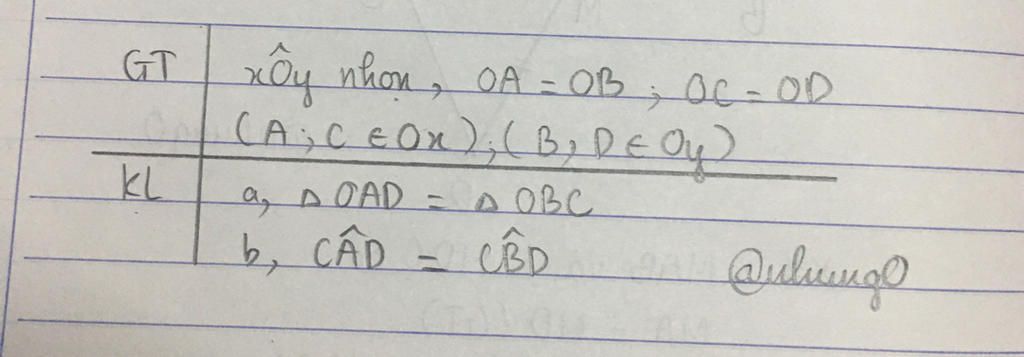 GT xÔy nhọn, OA = OB ; OC = OD
(A ; C ∈ Ox) ; (B, D ∈ Oy)
KL a, Δ OAD = Δ OBC
b, CÂD = CB̂D